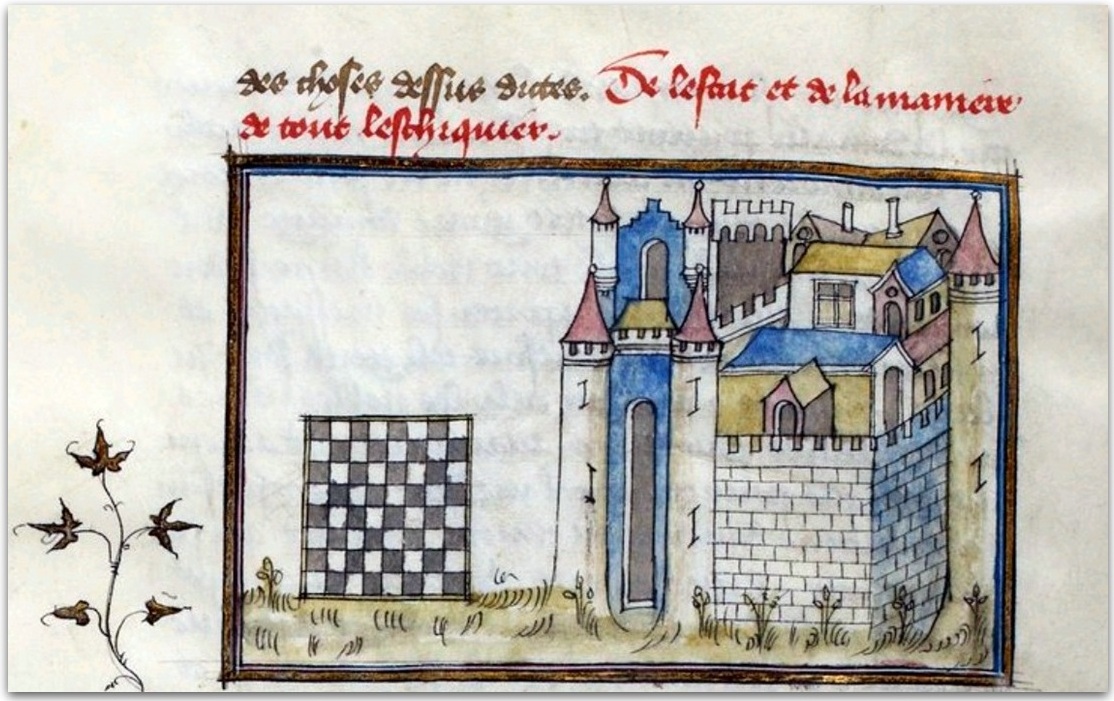 des choses dessus dictes. De lestat et de la maniere
de tout leschiquier.